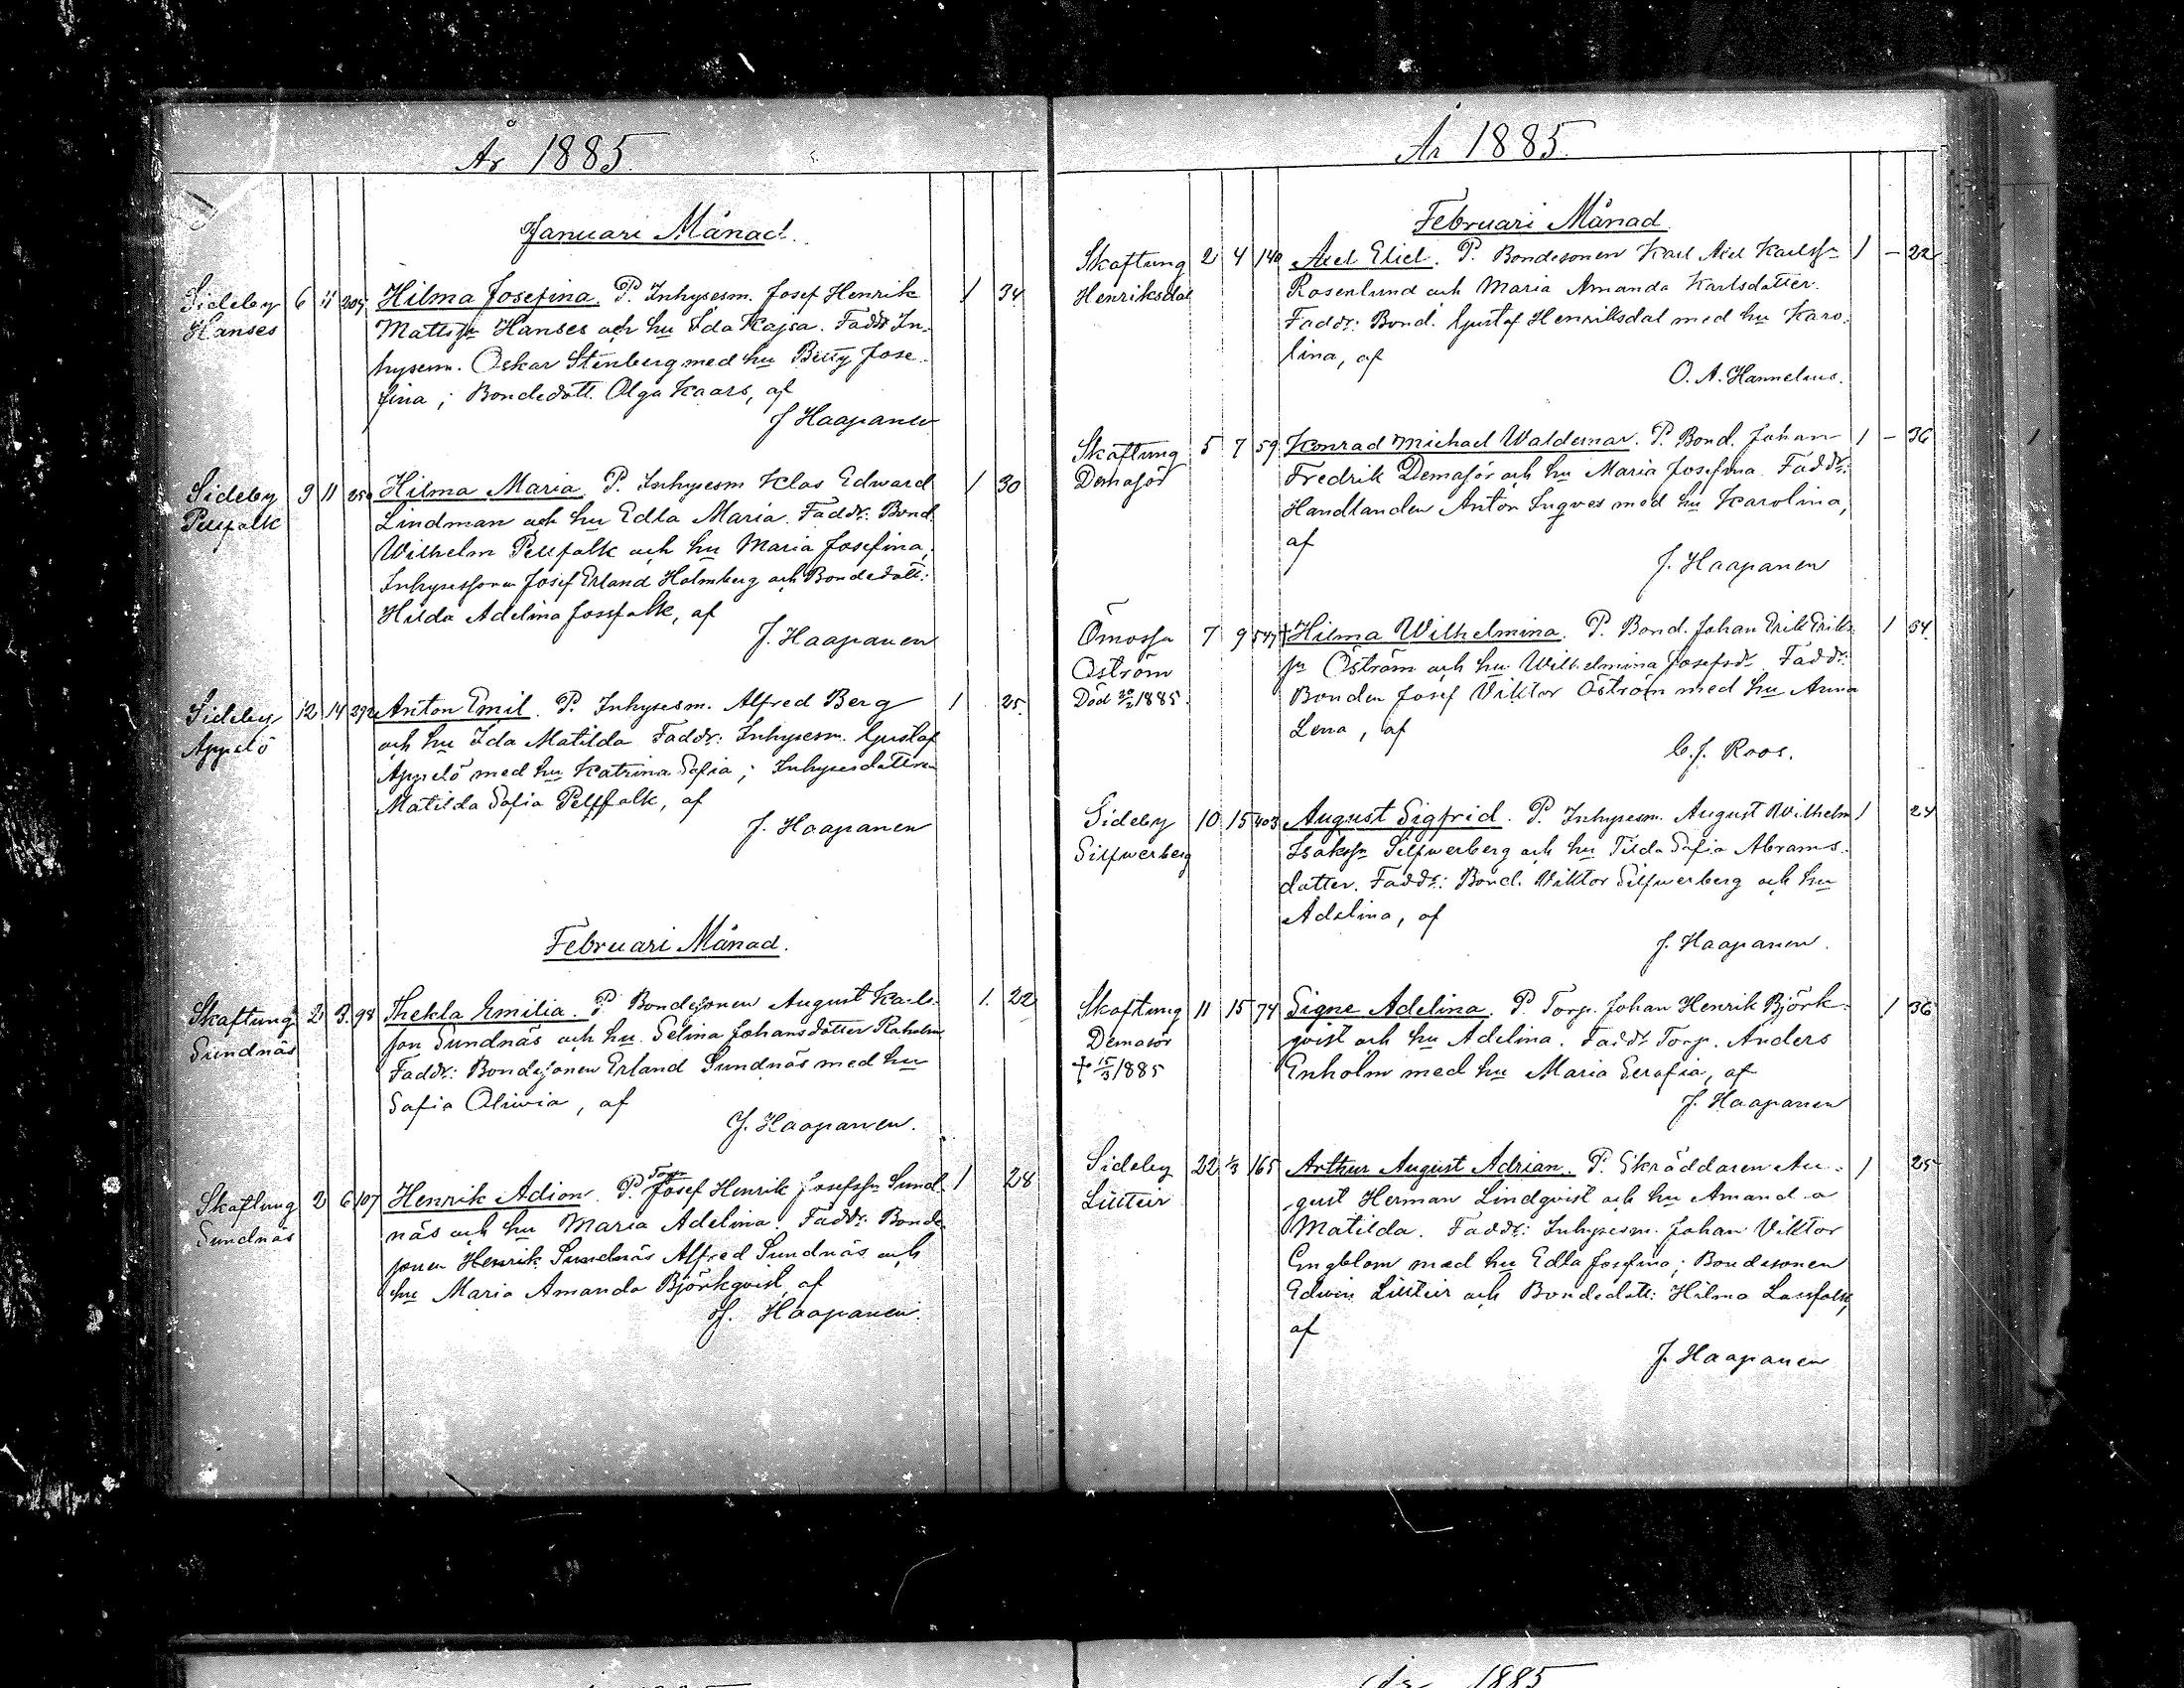 År 1885
Januari Månad.
Sideby 6 11 Hilma Josefina. P. Inhysesm. Josef Henrik 1 34
Hanses Mattsn Hanses och hu Ida Kajsa. Faddr: In-
hysesm. Oskar Stenberg med hu Betty Jose-
fina; Bondedott. Olga Kaars, af
J Haapanen
Sideby 9 11 Hilma Maria P. Inhysesm Klas Edward 1 30
Pellfalk Lindman och hu Edla Maria. Faddr: Bond.
Wilhelm Pellfalk och hu Maria Josefina,
Josef Erland Holmberg och Bondedott:
Hilda Adelina Jossfalk, af
J. Haapanen
Sideby 12 14 292 Anton Emil. P. Inhysesm. Alfred Berg 1 25.
Appelö och hu Ida Matilda Faddr: Inhysesm. Gustaf
Appelö med hu Katrina Sofia; Inhysesdottren
Matilda Sofia Pellfalk, af
J. Haapanen
Februari Månad.
Skaftung 2 3 98 Thekla Emilia. P. Bondesonen August Karls- 1. 22
Sundnäs son Sundnäs och hu. Selina Johansdotter
Faddr: Bondesonen Erland Sundnäs med hu
Sofia Oliwia, af
J. Haapanen.
Torp.
Skaftung 2 6 107 Henrik Adion. P. Josef Henrik Josefssn Sund- 1 28
Sundnäs näs och hu Maria Adelina. Faddr. Bonde
sonen Henrik Sundnäs Alfred Sundnäs och
hu Maria Amanda Björkqvist, af
J. Haapanen.
År 1885.
Februari Månad
Skaftung 2 4 140 Axel Eliel. P. Bondesonen Karl Axel Karlssn 1 – 22
Henriksdal Rosenlund och Maria Amanda Karlsdotter.
Faddr: Bond. Gustaf Henriksdal med hu Karo-
lina, af
O. A. Hannelius.
Skaftung 5 7 59 Konrad Michael Waldemar. P. Bond. Johan 1 – 36
Demasör Fredrik Demasör och hu Maria Josefina. Faddr:
Handlanden Anton Ingves med hu Karolina,
af
J. Haapanen
Ömossa 7 9 547 + Hilma Wilhelmina. P. Bond. Johan Erik Eriks- 1 34.
Öström sn Öström och hu. Wilhelmina Josefsdr. Faddr:
Död 1885. Bonden Josef Viktor Öström med hu Anna
Lena, af
C. J. Roos.
Sideby 10 15 403 August Sigfrid. P. Inhysesm. August Wilhelm 1 24
Silfwerberg Isakssn Silfwerberg och hu Tilda Sofia Abrams-
dotter. Faddr: Bond. Viktor Silfwerberg och hu
Adelina, af
J. Haapanen.
Skaftung 11 15 74 Signe Adelina. P. Torp. Johan Henrik Björk- 1 36
Demasör qvist och hu Adelina. Faddr Torp. Anders
+ 15/3 1885 Enholm med hu Maria Serafia, af
J. Haapanen
Sideby 22 1/3 165 Arthur August Adrian. P. Skräddaren Au- 1 25
Littur gust Herman Lindqvist och hu Amanda
Matilda. Faddr: Inhysesm. Johan Viktor
Engblom med hu Edla Josefina; Bondesonen
Edwin och Bondedott: Hilma Lassfolk,
af
J. Haapanen
År 1885